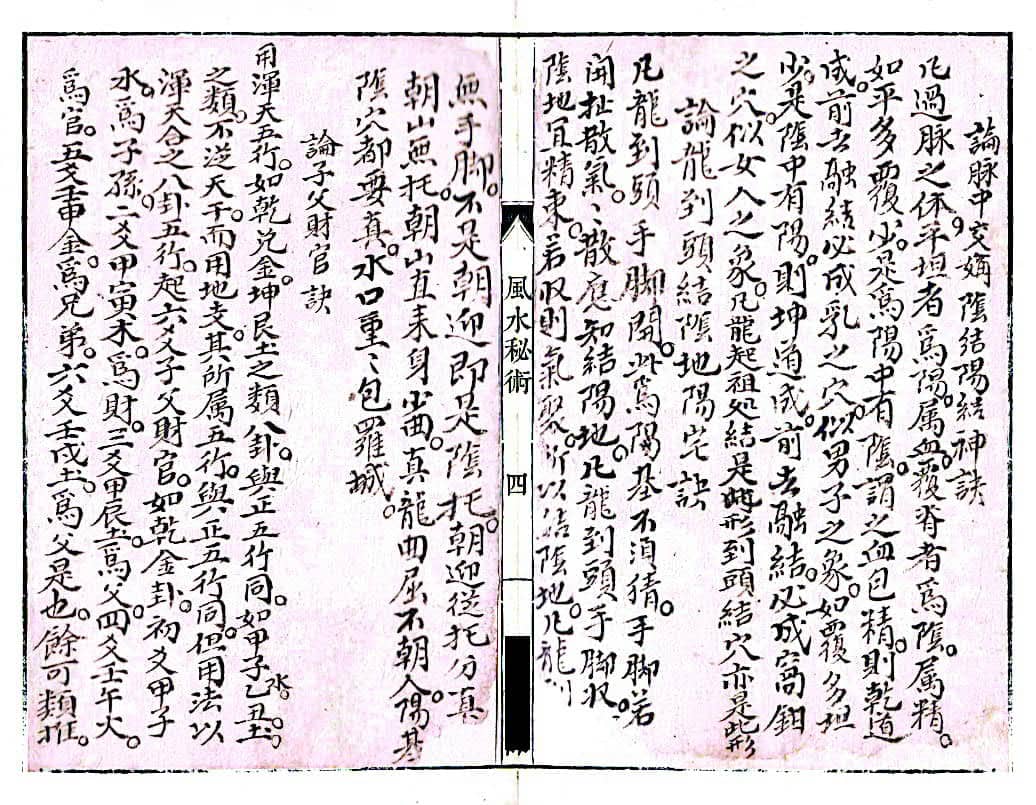 論脉中交媾陰結陽結神訣
凡過脉之体平坦者爲陽。属血。覆脊者爲陰。属精。
如平多覆少。是爲陽中有陰。謂之血包精。則乾道
成。前去融結必成乳之穴。似男子之象。如覆多坦
少。是陰中有陽。則坤道成。前去融結。必成窩鉗
之穴。似女人之象。凡龍起祖処結是此形到頭結穴亦是此形
論龍到頭結陰地陽宅訣
凡龍到頭手脚開。此爲陽基不須猜。手脚若
開扯散氣。〻散應知結陽地。凡龍到頭手脚収。
陰地宜精束。若収則氣聚。所以結陰地。凡龍
風水秘術
四
無手脚。不是朝迎即是陰托。朝迎従托分真
朝山無托。朝山直来身出面。真龍曲屈不朝人。陽基
陰穴都要真。水口重〻包羅城。
論子父財官訣
用渾天五行。如乾兌金。坤艮土之類八卦。與正五行同。如甲子水。乙丑土。
之類。不逆天干。而用地支。其所属五行。與正五行同。但用法以
渾天合之八卦五行。起六爻子父財官。如乾金卦。初爻甲子
水。爲子孫。二爻甲寅木。爲財。三爻甲辰土。爲父。四爻壬午火。
爲官。五爻壬申金。爲兄弟。六爻壬戌土。爲父是也。餘可類推。